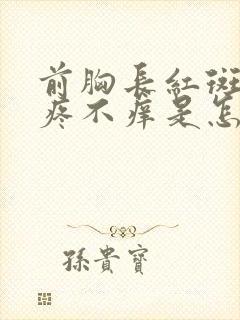 前胸長紅斑
疼不癢是怎
孫貴寶